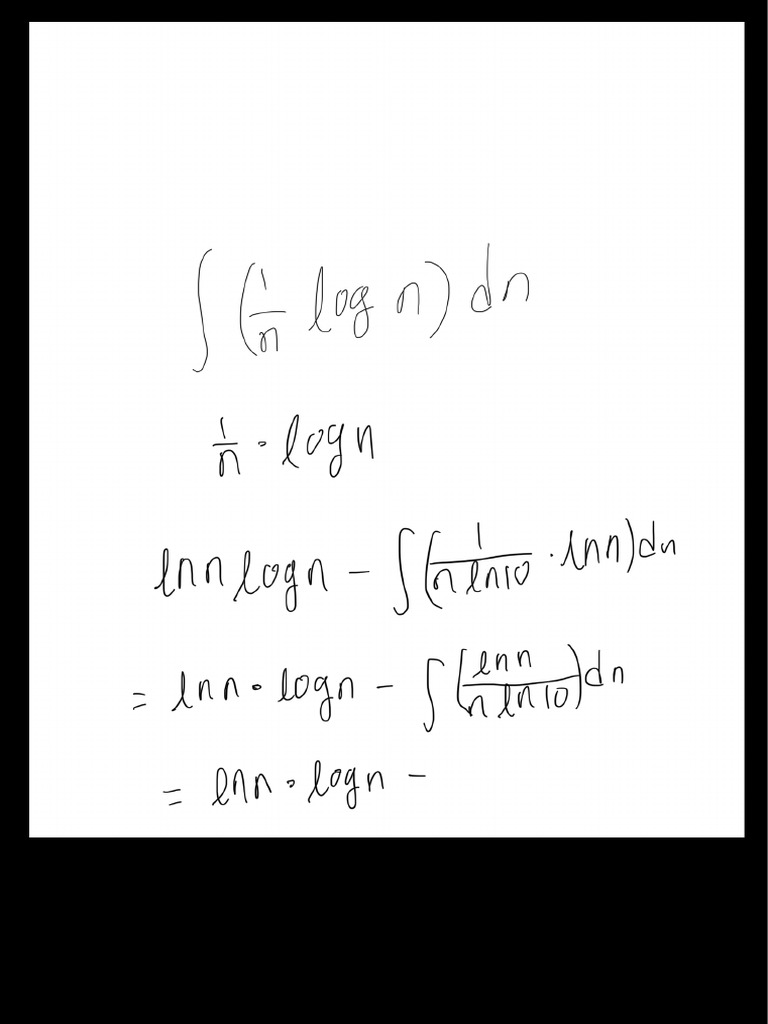 ∫ (1/n log n) dn
1/n · log n
ln n log n − ∫ (1/(n ln 10) · ln n) dn
= ln n · log n − ∫ (ln n/(n ln 10)) dn
= ln n · log n −